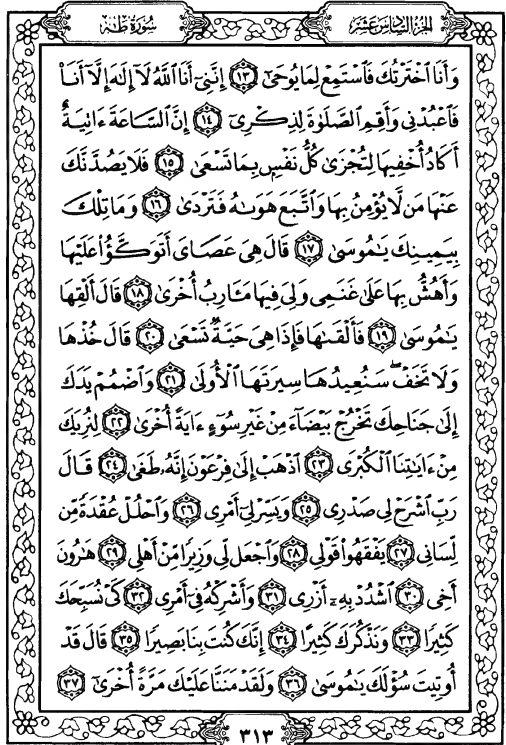 سُورَةُ طه
الجُزْءُ السَّادِسُ عَشَرَ
وَأَنَا ٱخْتَرْتُكَ فَٱسْتَمِعْ لِمَا يُوحَىٰٓ ١٣ إِنَّنِىٓ أَنَا ٱللَّهُ لَآ إِلَٰهَ إِلَّآ أَنَا۠
فَٱعْبُدْنِى وَأَقِمِ ٱلصَّلَوٰةَ لِذِكْرِىٓ ١٤ إِنَّ ٱلسَّاعَةَ ءَاتِيَةٌ
أَكَادُ أُخْفِيهَا لِتُجْزَىٰ كُلُّ نَفْسٍۭ بِمَا تَسْعَىٰ ١٥ فَلَا يَصُدَّنَّكَ
عَنْهَا مَن لَّا يُؤْمِنُ بِهَا وَٱتَّبَعَ هَوَىٰهُ فَتَرْدَىٰ ١٦ وَمَا تِلْكَ
بِيَمِينِكَ يَٰمُوسَىٰ ١٧ قَالَ هِىَ عَصَاىَ أَتَوَكَّؤُا۟ عَلَيْهَا
وَأَهُشُّ بِهَا عَلَىٰ غَنَمِى وَلِىَ فِيهَا مَـَٔارِبُ أُخْرَىٰ ١٨ قَالَ أَلْقِهَا
يَٰمُوسَىٰ ١٩ فَأَلْقَىٰهَا فَإِذَا هِىَ حَيَّةٌ تَسْعَىٰ ٢٠ قَالَ خُذْهَا
وَلَا تَخَفْ ۖ سَنُعِيدُهَا سِيرَتَهَا ٱلْأُولَىٰ ٢١ وَٱضْمُمْ يَدَكَ
إِلَىٰ جَنَاحِكَ تَخْرُجْ بَيْضَآءَ مِنْ غَيْرِ سُوٓءٍ ءَايَةً أُخْرَىٰ ٢٢ لِنُرِيَكَ
مِنْ ءَايَٰتِنَا ٱلْكُبْرَى ٢٣ ٱذْهَبْ إِلَىٰ فِرْعَوْنَ إِنَّهُۥ طَغَىٰ ٢٤ قَالَ
رَبِّ ٱشْرَحْ لِى صَدْرِى ٢٥ وَيَسِّرْ لِىٓ أَمْرِى ٢٦ وَٱحْلُلْ عُقْدَةً مِّن
لِّسَانِى ٢٧ يَفْقَهُوا۟ قَوْلِى ٢٨ وَٱجْعَل لِّى وَزِيرًا مِّنْ أَهْلِى ٢٩ هَٰرُونَ
أَخِى ٣٠ ٱشْدُدْ بِهِۦٓ أَزْرِى ٣١ وَأَشْرِكْهُ فِىٓ أَمْرِى ٣٢ كَىْ نُسَبِّحَكَ
كَثِيرًا ٣٣ وَنَذْكُرَكَ كَثِيرًا ٣٤ إِنَّكَ كُنتَ بِنَا بَصِيرًا ٣٥ قَالَ قَدْ
أُوتِيتَ سُؤْلَكَ يَٰمُوسَىٰ ٣٦ وَلَقَدْ مَنَنَّا عَلَيْكَ مَرَّةً أُخْرَىٰٓ ٣٧
٣١٣